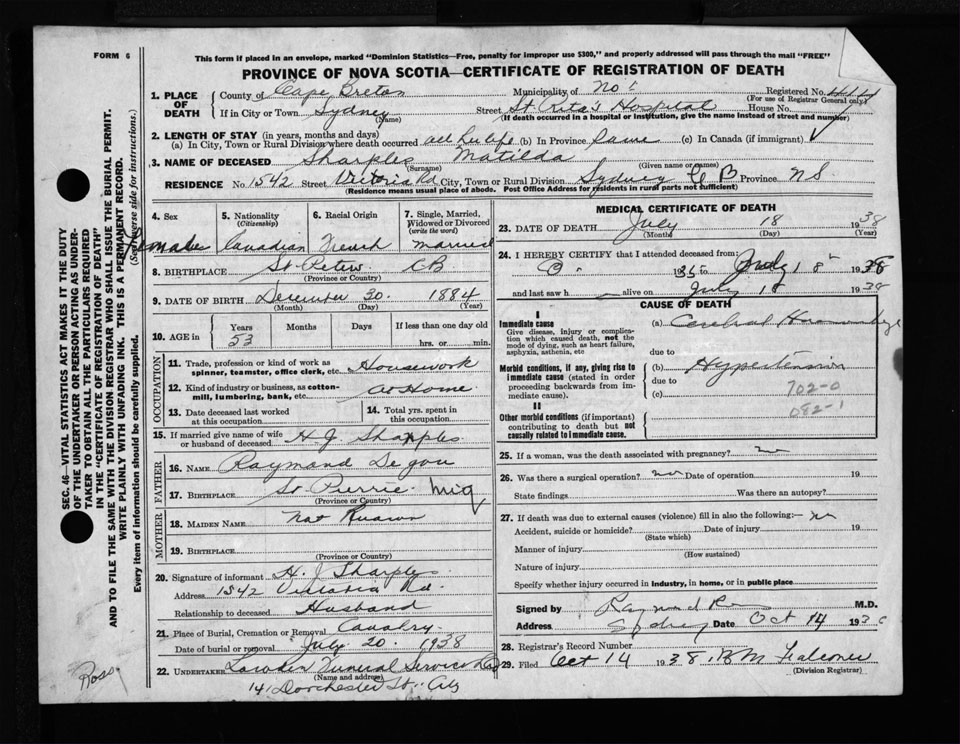 FORM 6
This form if placed in an envelope, marked "Dominion Statistics—Free, penalty for improper use $300," and properly addressed will pass through the mail "FREE"
PROVINCE OF NOVA SCOTIA—CERTIFICATE OF REGISTRATION OF DEATH
SEC. 46—VITAL STATISTICS ACT MAKES IT THE DUTY
OF THE UNDERTAKER OR PERSON ACTING AS UNDER-
TAKER TO OBTAIN ALL THE PARTICULARS REQUIRED
IN THE "CERTIFICATE OF REGISTRATION OF DEATH"
AND TO FILE THE SAME WITH THE DIVISION REGISTRAR WHO SHALL ISSUE THE BURIAL PERMIT.
WRITE PLAINLY WITH UNFADING INK. THIS IS A PERMANENT RECORD.
Every item of information should be carefully supplied. (See reverse side for instructions.)
Ross
1. PLACE OF DEATH County of Cape Breton Municipality of Registered No.
(For use of Registrar General only)
If in City or Town Sydney Street St. Rita's Hospital House No.
(Name) (If death occurred in a hospital or institution, give the name instead of street and number)
2. LENGTH OF STAY (in years, months and days)
(a) In City, Town or Rural Division where death occurred all her life (b) In Province same (c) In Canada (if immigrant)
3. NAME OF DECEASED Sharples Matilda
(Surname) (Given name or names)
RESIDENCE No. 1542 Street Victoria Rd City, Town or Rural Division Sydney C B Province N S
(Residence means usual place of abode. Post Office Address for residents in rural parts not sufficient)
4. Sex 5. Nationality (Citizenship) 6. Racial Origin 7. Single, Married, Widowed or Divorced (write the word)
Female Canadian French married
8. BIRTHPLACE St. Peters CB
(Province or Country)
9. DATE OF BIRTH December 30. 1884
(Month) (Day) (Year)
10. AGE in Years Months Days If less than one day old
53 hrs. or min.
OCCUPATION
11. Trade, profession or kind of work as spinner, teamster, office clerk, etc. Housework
12. Kind of industry or business, as cotton-mill, lumbering, bank, etc. At Home
13. Date deceased last worked at this occupation 14. Total yrs. spent in this occupation
15. If married give name of wife or husband of deceased H. J. Sharples
FATHER
16. NAME Raymond
17. BIRTHPLACE St. Pierre Miq
(Province or Country)
MOTHER
18. MAIDEN NAME Not Known
19. BIRTHPLACE
(Province or Country)
20. Signature of informant H. J. Sharples
Address 1542 Victoria Rd.
Relationship to deceased Husband
21. Place of Burial, Cremation or Removal Cavalry
Date of burial or removal July 20. 1938
22. UNDERTAKER Funeral Service
(Name and address)
14 Dorchester St. City
MEDICAL CERTIFICATE OF DEATH
23. DATE OF DEATH July 18 1938
(Month) (Day) (Year)
24. I HEREBY CERTIFY that I attended deceased from:
to July 18 1938
and last saw h alive on July 18 1938
CAUSE OF DEATH
I
Immediate cause (a) Cerebral Hemorrhage
Give disease, injury or complication which caused death, not the mode of dying, such as heart failure, asphyxia, asthenia, etc
due to
Morbid conditions, if any, giving rise to immediate cause (stated in order proceeding backwards from immediate cause). (b) Hypertension
due to
(c) 702-0
082-1
II
Other morbid conditions (if important) contributing to death but not causally related to immediate cause.
25. If a woman, was the death associated with pregnancy? no
26. Was there a surgical operation? no Date of operation 19
State findings Was there an autopsy?
27. If death was due to external causes (violence) fill in also the following:— no
Accident, suicide or homicide? Date of injury 19
(State which)
Manner of injury
(How sustained)
Nature of injury
Specify whether injury occurred in industry, in home, or in public place
Signed by Raymond M.D.
Address Sydney Date Oct 14 193
28. Registrar's Record Number
29. Filed Oct 14 1938
(Division Registrar)